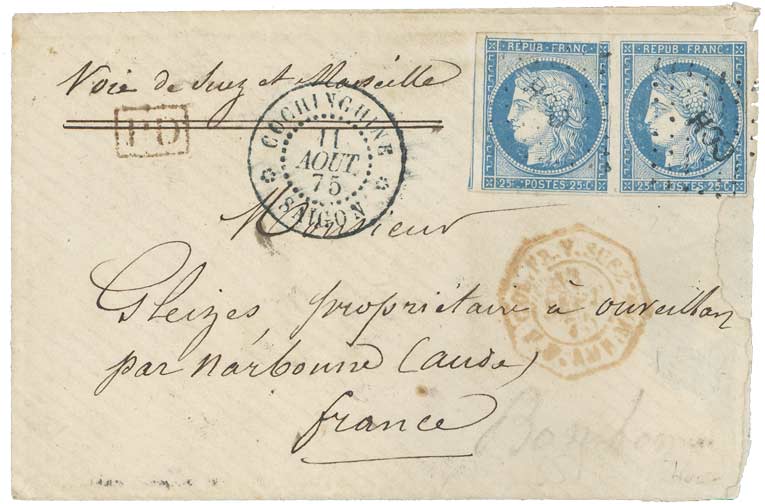 REPUB · FRANC · REPUB · FRANC ·
Voie de Suez et Marseille
PD
COCHINCHINE
11
AOUT
75
SAIGON
25c POSTES 25c 25c POSTES 25c
Monsieur
Gleizes, propriétaire à ouveillan
par Narbonne (Aude)
france
V. SUEZ
AMB